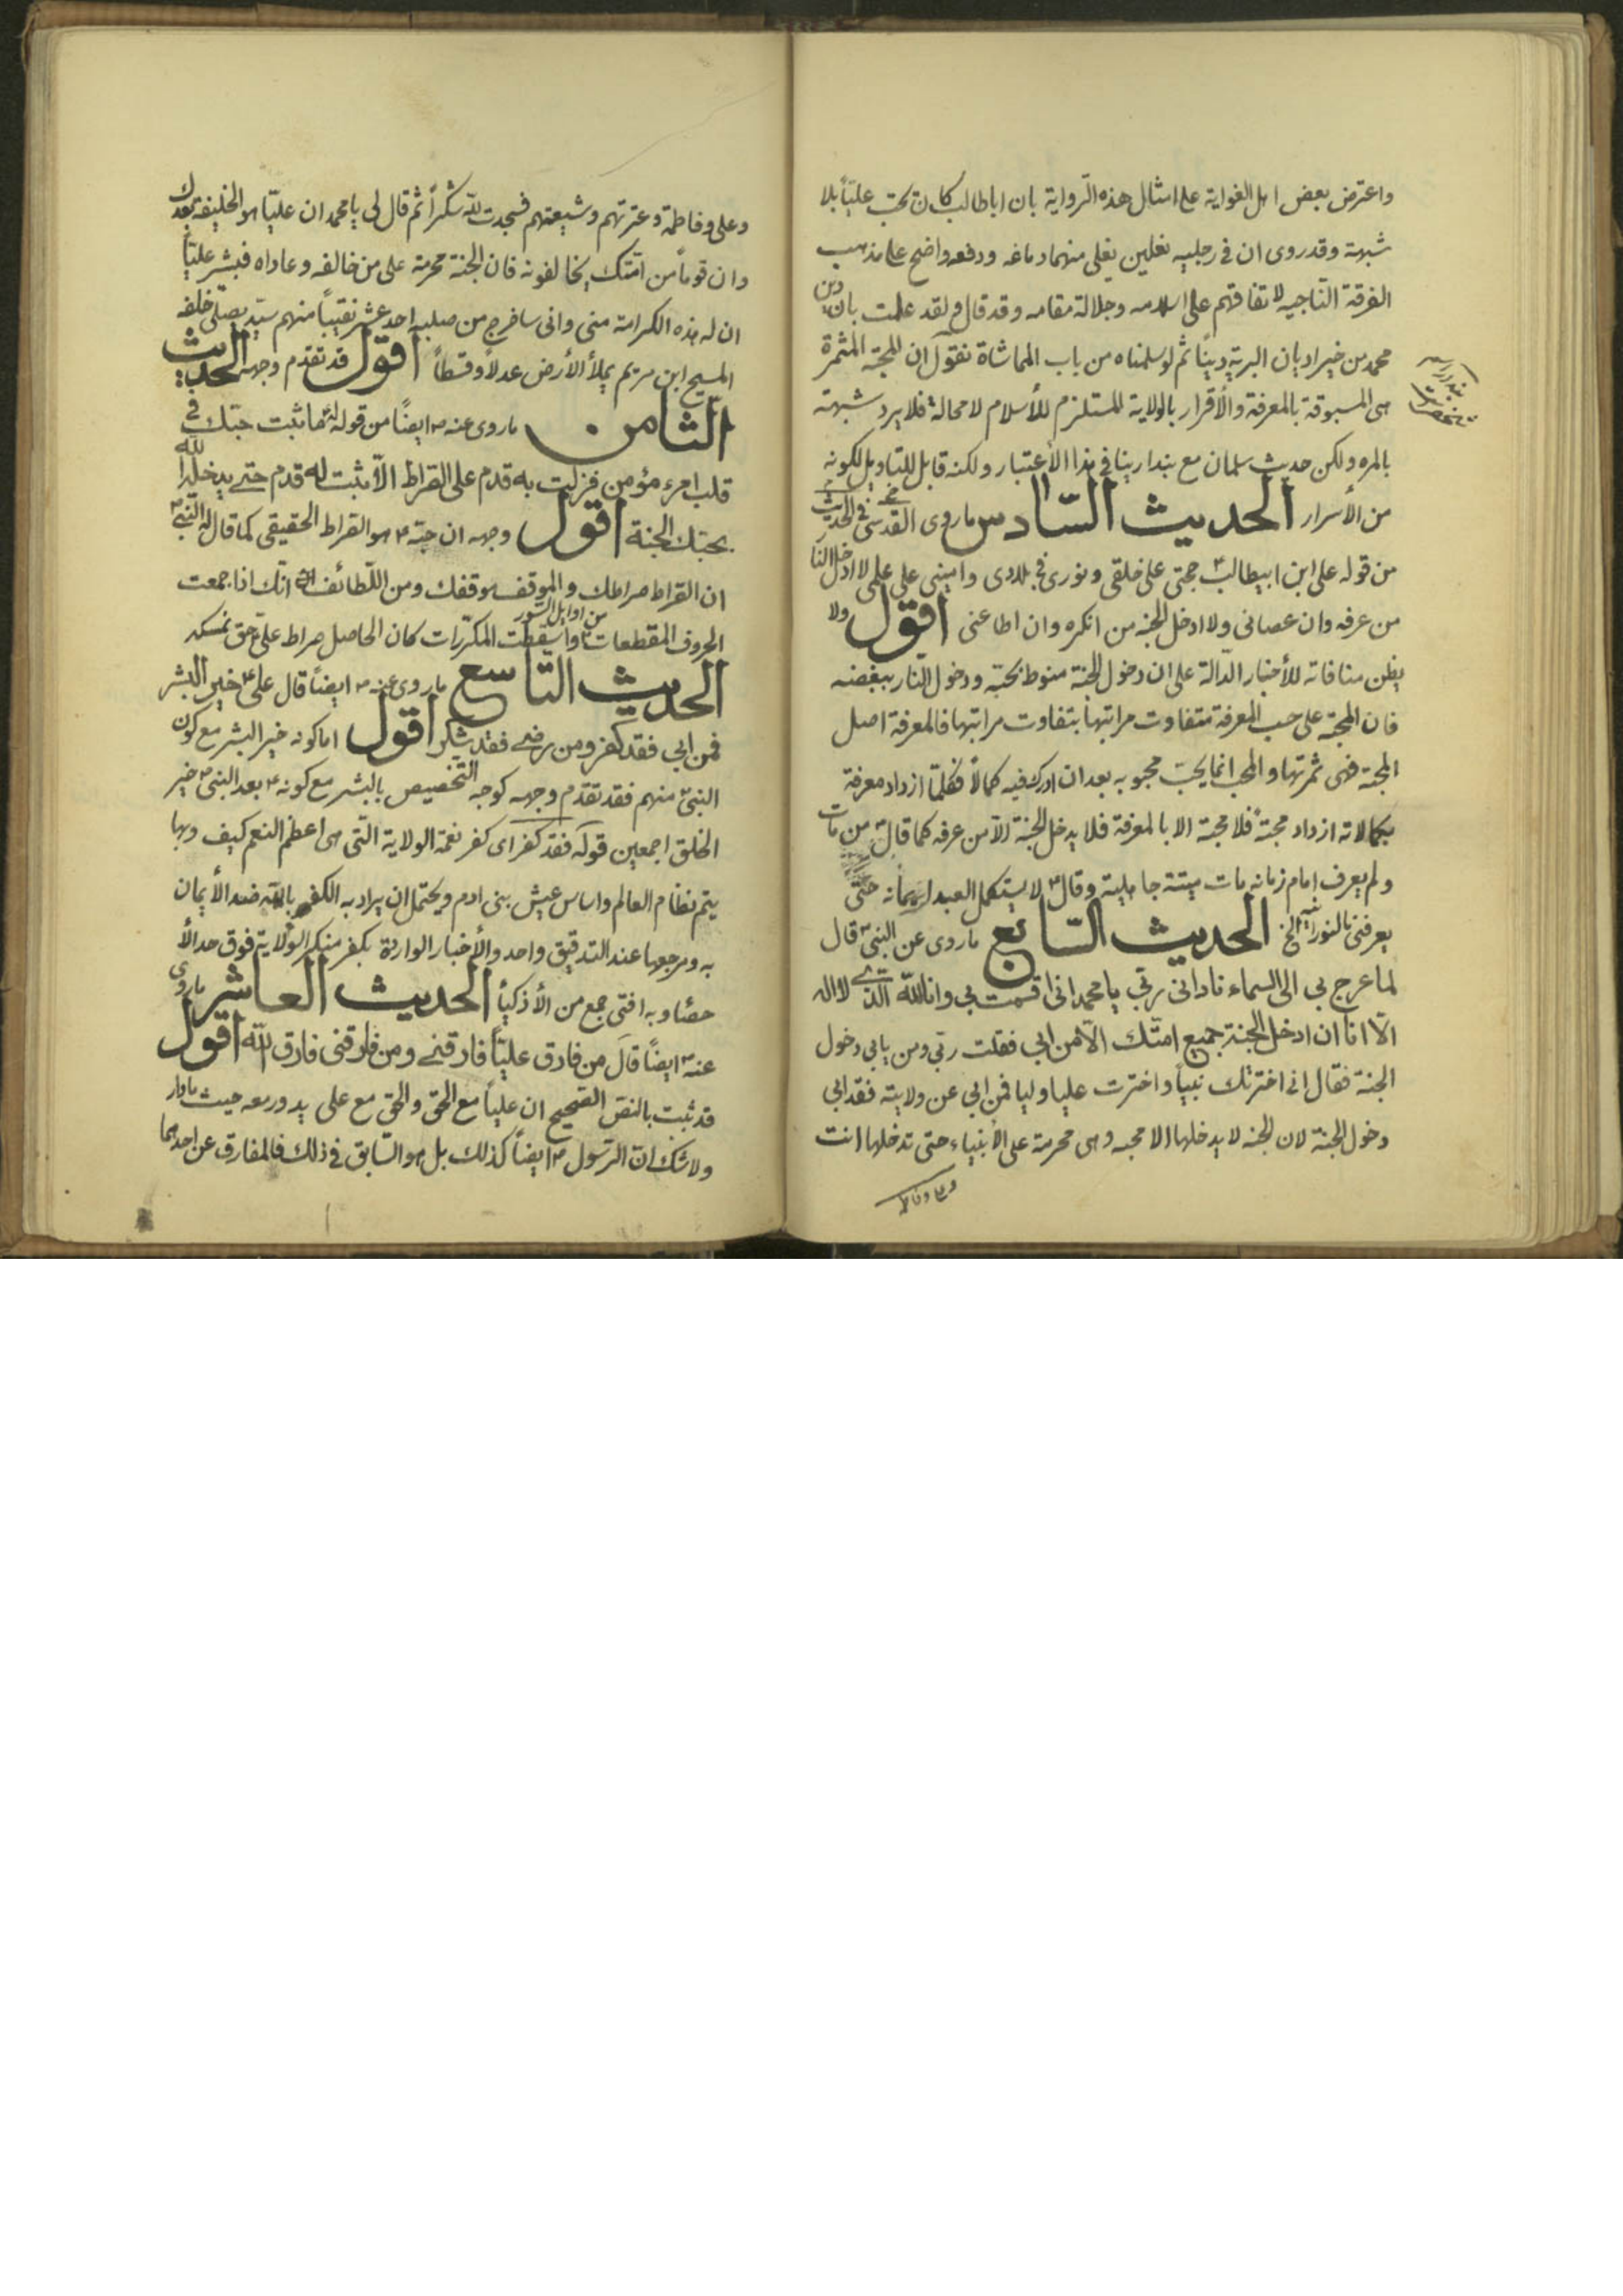 واعترض بعض اهل الغواية على امثال هذه الرواية بان اباطالب كان يحب عليّاً بلا
شبهة وقد روى ان في رجليه نعلين يغلى منهما دماغه ودفعه واضح على مذهب
الفرقة الناجيه لاتفاقهم على اسلامه وجلالة مقامه وقد قال ولقد علمت بان دين
محمد من خير اديان البرية ديناً ثم لو سلمناه من باب المماشاة نقول ان المحبّة المثمرة
هى المسبوقة بالمعرفة والأقرار بالولاية المستلزم للأسلام لا محالة فلا يرد شبهته
بالمره ولكن حديث سلمان مع بندار ينافى هذا الأعتبار ولكنه قابل للتاويل لكونه
من الأسرار الحديث السّادس ما روى في الحديث القدسى
من قوله على ابن ابيطالب حجتى على خلقى ونورى فى بلادى وامينى على علمى لا ادخل النا
من عرفه وان عصانى ولا ادخل الجنه من انكره وان اطاعنى اقول ولا
يظن منافاته للأخبار الدالة على ان دخول الجنة منوط بحبّه ودخول النار ببغضه
فان المحبّة على حسب المعرفة متفاوت مراتبها بتفاوت مراتبها فالمعرفة اصل
المحبّة فهى ثمرتها والمحب انما يحبّ محبوبه بعد ان ادرك فيه كمالاً فكلّما ازداد معرفة
بكمالاته ازداد محبّة فلا محبّة الا بالمعرفة فلا يدخل الجنة الّا من عرفه كما قال من مات
ولم يعرف امام زمانه مات ميتة جاهلية وقال لا يستكمل العبد ايمانه حتّى
يعرفنى بالنورانيه الخ الحديث السّابع ما روى عن النبى قال
لما عرج بى الى السماء نادانى ربّى يا محمد انى اقسمت بى وانا الله الّذى لا اله
الّا انا ان ادخل الجنة جميع امتّك الّا من ابى فقلت ربّى ومن يابى دخول
الجنة فقال انى اخترتك نبياً واخترت عليا وليا فمن ابى عن ولايته فقد ابى
دخول الجنة لان الجنه لا يدخلها الا محبه وهى محرمة على الأنبياء حتى تدخلها انت
وعلى وفاطمه
وعلى وفاطمة وعترتهم وشيعتهم فسجدت لله شكراً ثم قال لى يا محمد ان عليّاً هو الخليفة بعدك
وان قوماً من امّتك يخالفونه فان الجنّة محرمة على من خالفه وعاداه فبشر عليّاً
ان له هذه الكرامة منى وانى ساخرج من صلبه احد عشر نقيباً منهم سيّد يصلّى خلفه
المسيح ابن مريم يملأ الأرض عدلاً وقسطاً اقول قد تقدم وجهه الحديث
الثامن ما روى عنه ايضاً من قوله ما ثبت حبّك فى
قلب امرء مؤمن فزلت به قدم على الصّراط الّا ثبت له قدم حتّى يدخله الله
بحبّك الجنة اقول وجهه ان حبّه هو الصّراط الحقيقى كما قال له النّبى
ان الصّراط صراطك والموقف موقفك ومن اللّطائف انّك اذا جمعت
الحروف المقطعات من اوايل السّور واسقطت المكرّرات كان الحاصل صراط علىّ حق نمسكه
الحديث التاسع ما روى عنه ايضاً قال على خير البشر
فمن ابى فقد كفر ومن رضى فقد شكر اقول اما كونه خير البشر مع كون
النبىّ منهم فقد تقدّم وجهه كوجه التخصيص بالبشر مع كونه بعد النبى خير
الخلق اجمعين قوله فقد كفر اى كفر نعمة الولاية الّتى هى اعظم النعم كيف وبها
يتم نظام العالم واساس عيش بنى ادم ويحتمل ان يراد به الكفر بالله ضد الأيمان
به ومرجعها عند التدقيق واحد والأخبار الواردة بكفر منكر الولاية فوق حد الأ
حصٔا وبه افتى جمع من الأذكيأ الحديث العاشر ما روى
عنه ايضاً قال من فارق عليّاً فارقنى ومن فارقنى فارق الله اقول
قد ثبت بالنصّ الصّحيح ان علياً مع الحق والحق مع على يدور معه حيث ما دار
ولا شك انّ الرّسول ايضاً كذلك بل هو السّابق فى ذلك فالمفارق عن احدهما